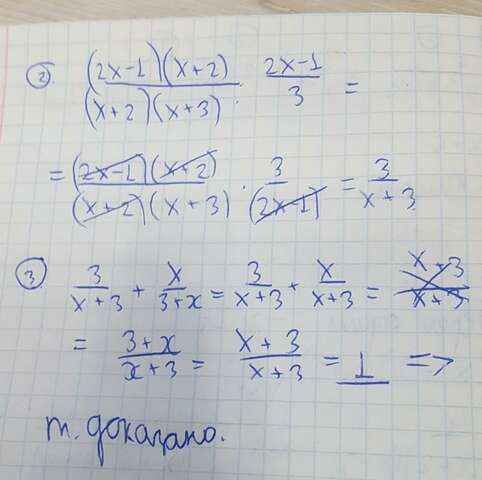 2). ((2x-1)(x+2))/((x+2)(x+3)) : (2x-1)/3 =
= ((2x-1)(x+2))/((x+2)(x+3)) · 3/(2x-1) = 3/(x+3)
3) 3/(x+3) + x/(3+x) = 3/(x+3) + x/(x+3) = (x+3)/(x+3)
= (3+x)/(x+3) = (x+3)/(x+3) = 1 =>
т. доказано.